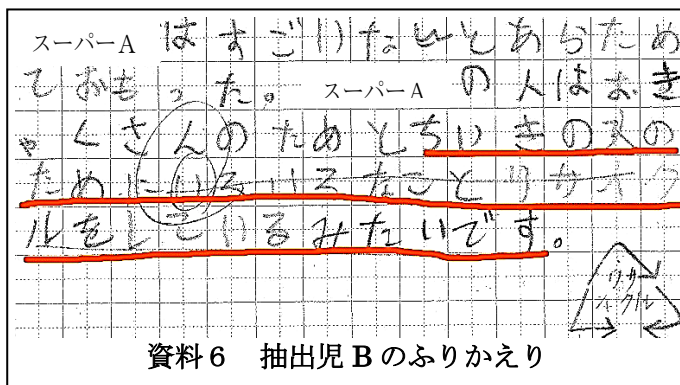 スーパーA はすごいなぁとあらため
ておもった。 スーパーA の人はおき
ゃくさんのためとちいきの人の
ためにいろいろなことリサイク
ルをしているみたいです。
リサ
イクル
資料6 抽出児Bのふりかえり